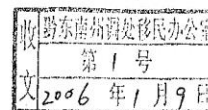 收文
黔东南州调处移民办公室
第 1 号
2006 年 1 月 9 日